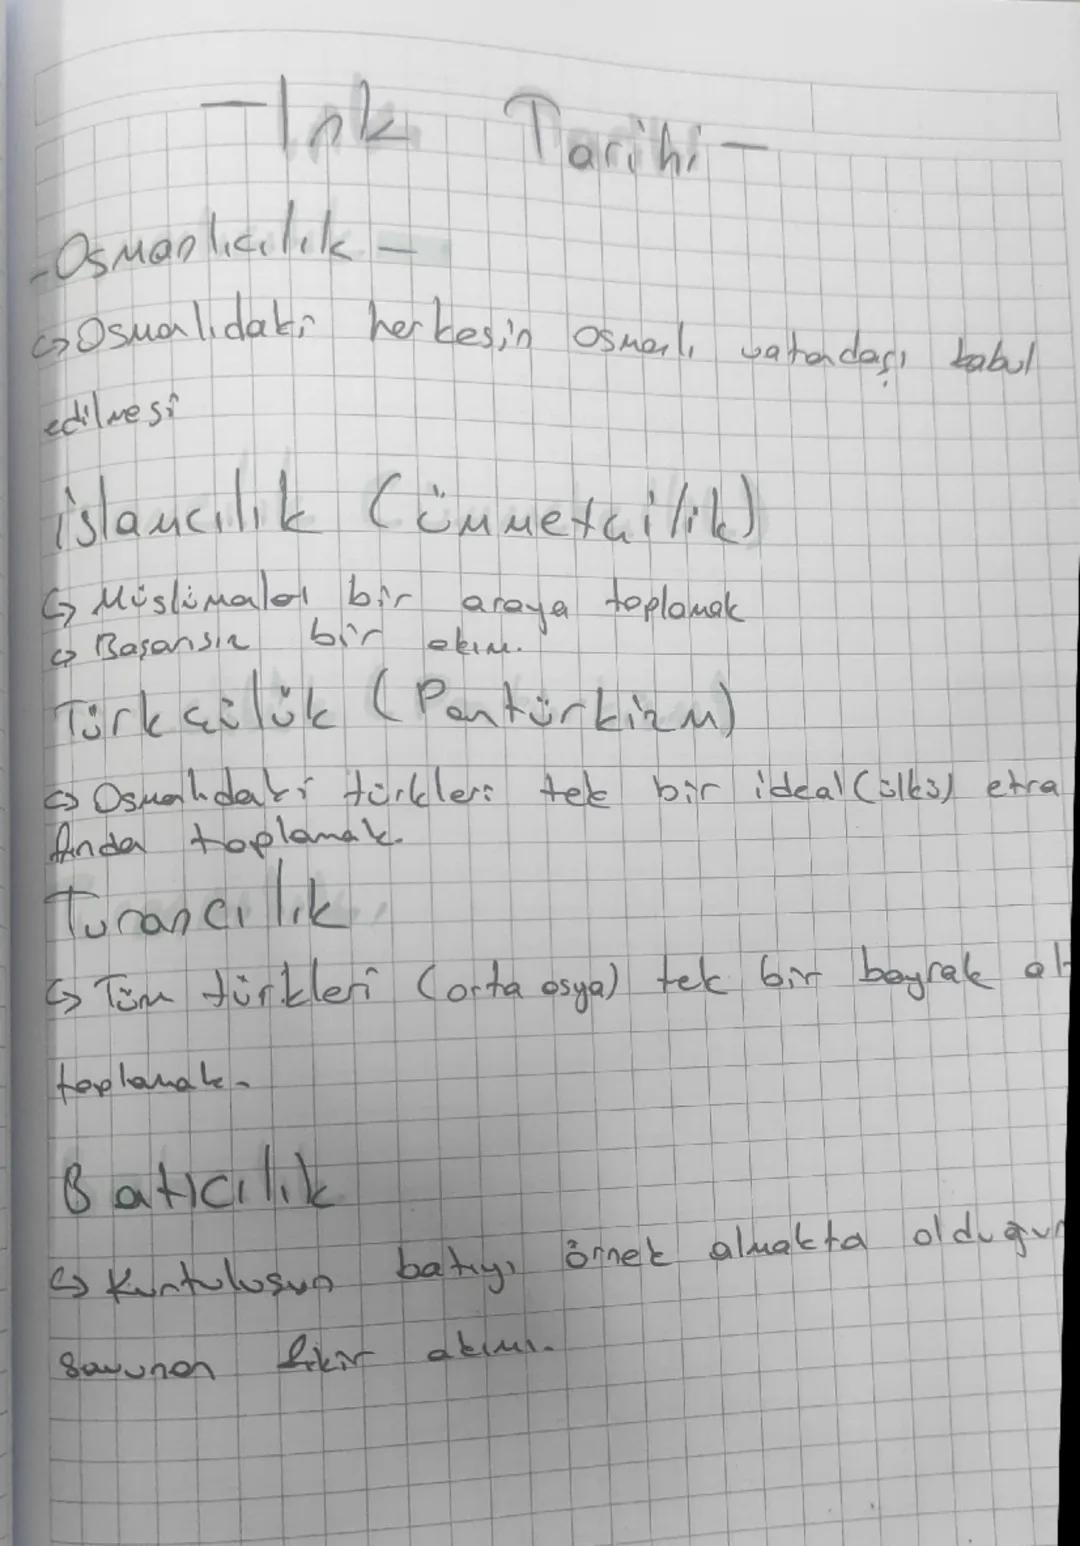 - İnk Tarihi -
- Osmanlıcılık -
↪ Osmalıdaki herkesin Osmalı vatandaşı kabul
edilmesi
İslamcılık (Ümmetçilik)
↪ Müslümalaı bir araya toplamak
↪ Başarısız bir akım.
Türkçülük (Pantürkizm)
↪ Osmalıdaki türkleri tek bir ideal (ülkü) etra
fında toplamak.
Turancılık
↪ Tüm türkleri (orta asya) tek bir bayrak al
toplamak.
Batıcılık
↪ Kurtuluşun batıyı örnek almakta olduğun
savunan fikir akımı.